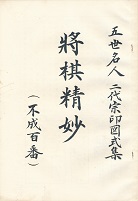 五世名人 二代宗印図式集
將棋精妙
(不成百番)